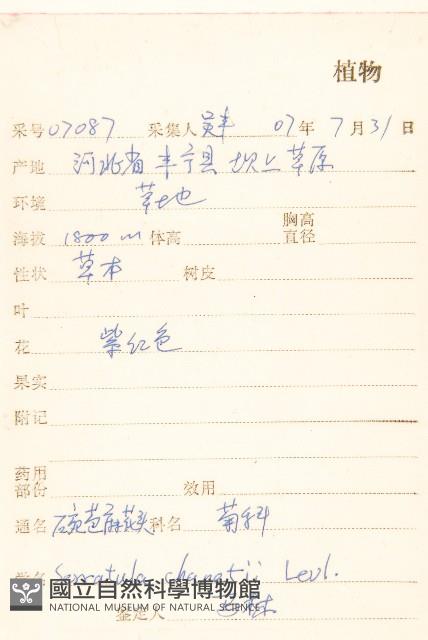 植物
采号 07087 采集人 吴丰 07年 7月31日
产地 河北省丰宁县坝上草原
环境 草地
海拔 1800 m 体高 胸高直径
性状 草本 树皮
叶
花 紫红色
果实
附记
药用部份 效用
通名 碗苞麻花头 科名 菊科
Serratula chanetii Levl.
國立自然科學博物館
NATIONAL MUSEUM OF NATURAL SCIENCE